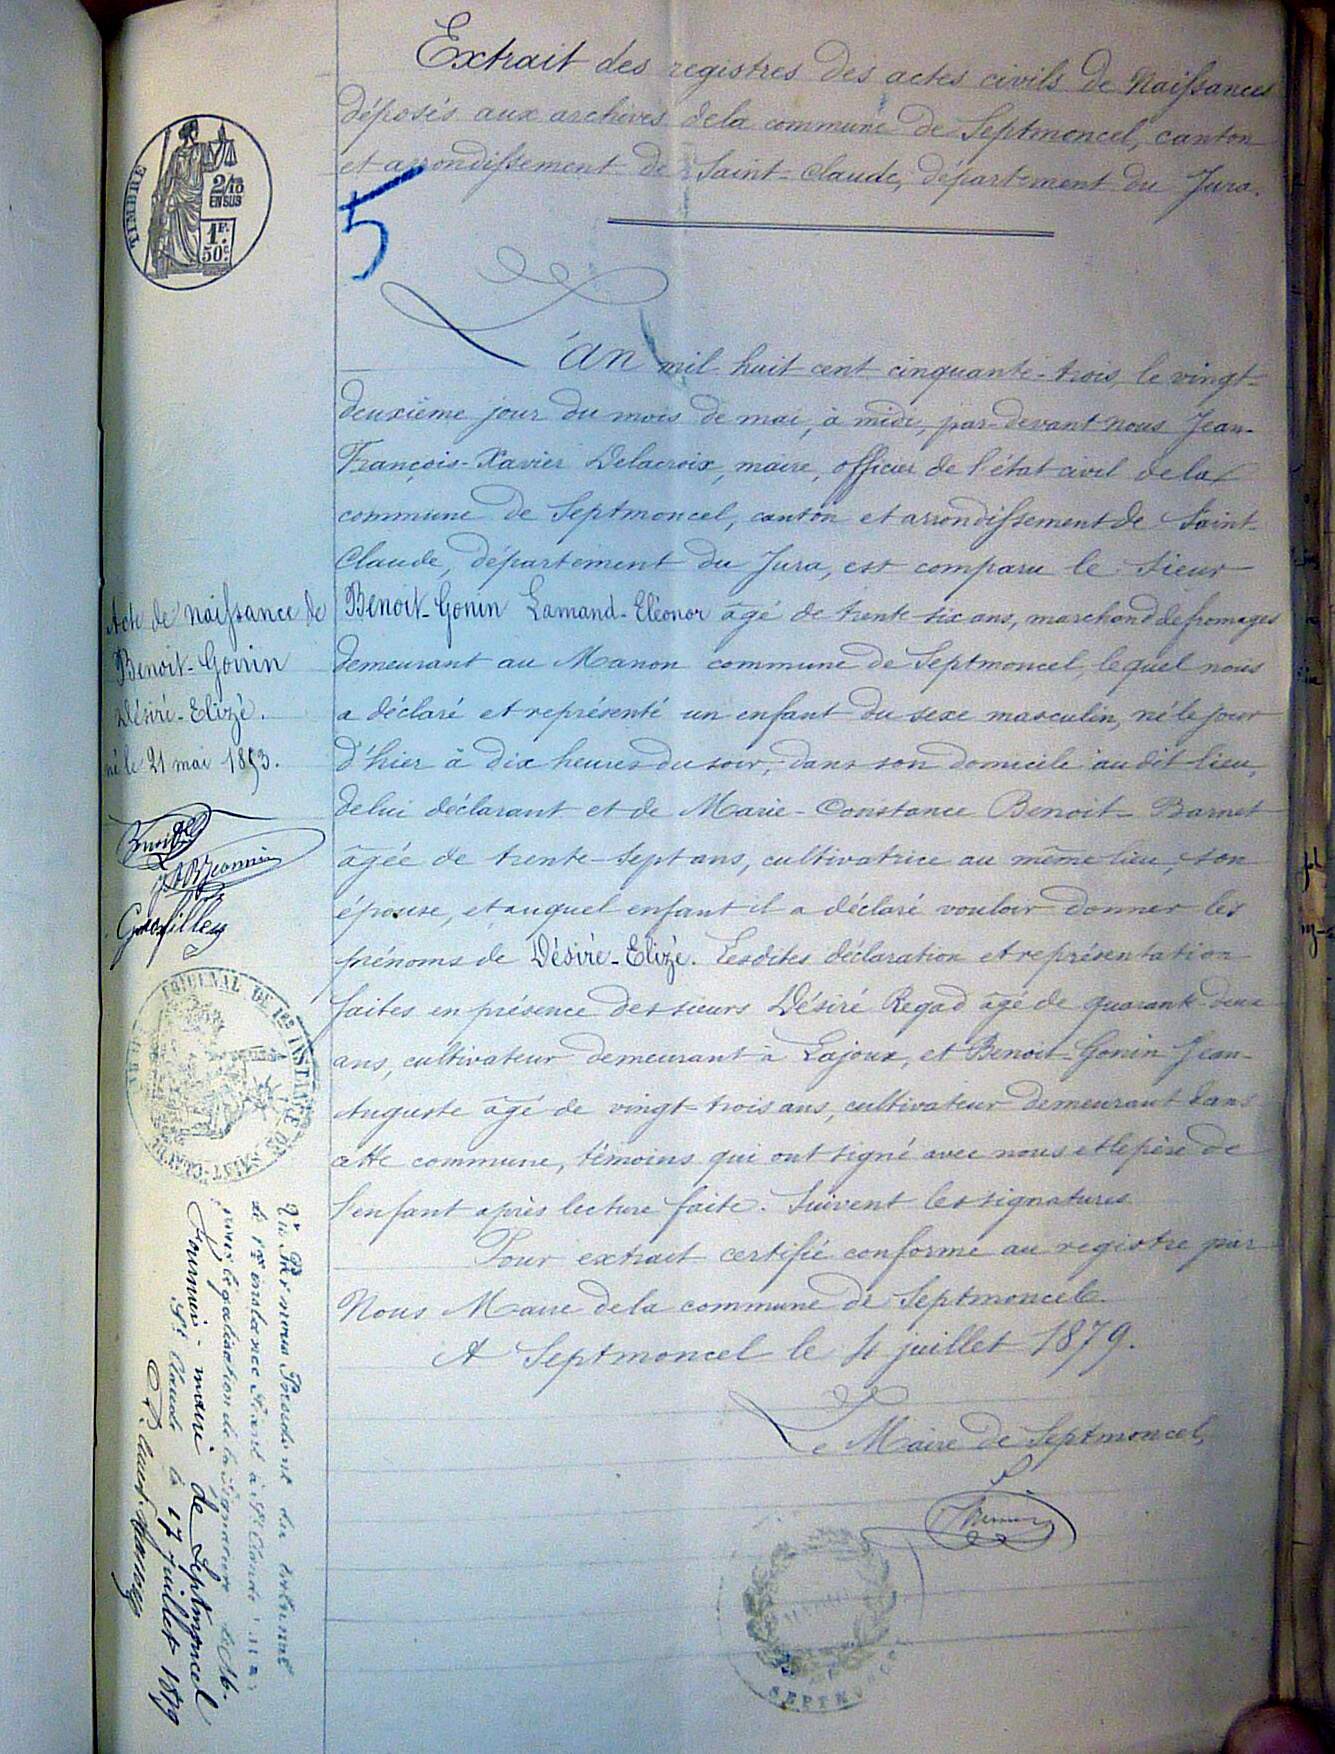 Extrait des registres des actes civils de Naissances
déposés aux archives de la commune de Septmoncel, canton
et arrondissement de Saint-Claude, département du Jura.
TIMBRE
2/10
EN SUS
1F.
50c.
5
L'an mil huit cent cinquante-trois, le vingt-
deuxième jour du mois de mai, à midi, par-devant nous Jean-
François-Xavier Delacroix, maire, officier de l'état civil de la
commune de Septmoncel, canton et arrondissement de Saint-
Claude, département du Jura, est comparu le sieur
Benoit-Gonin Lamand-Eléonor âgé de trente-six ans, marchand de fromages
demeurant au Manon commune de Septmoncel, lequel nous
a déclaré et représenté un enfant du sexe masculin, né le jour
d'hier à dix heures du soir, dans son domicile audit lieu,
de lui déclarant et de Marie-Constance Benoit-Barnet
âgée de trente-sept ans, cultivatrice au même lieu, son
épouse, et auquel enfant il a déclaré vouloir donner les
prénoms de Désiré-Elizé. Lesdites déclaration et représentation
faites en présence des sieurs Désiré Regad âgé de quarante-deux
ans, cultivateur demeurant à Lajoux, et Benoit-Gonin Jean-
Auguste âgé de vingt-trois ans, cultivateur demeurant dans
cette commune, témoins qui ont signé avec nous et le père de
l'enfant après lecture faite. Suivent les signatures
Pour extrait certifié conforme au registre par
Nous Maire de la commune de Septmoncel.
A Septmoncel le 4 juillet 1879.
Le Maire de Septmoncel,
SEPTMONCEL
Acte de naissance de
Benoit-Gonin
Désiré-Elizé.
né le 21 mai 1853.
TRIBUNAL DE 1re INSTANCE DE SAINT-CLAUDE
Vu Par nous Président du tribunal
de 1re instance séant à St Claude
pour légalisation de la signature de M.
Fournier maire de Septmoncel
St Claude le 17 juillet 1879